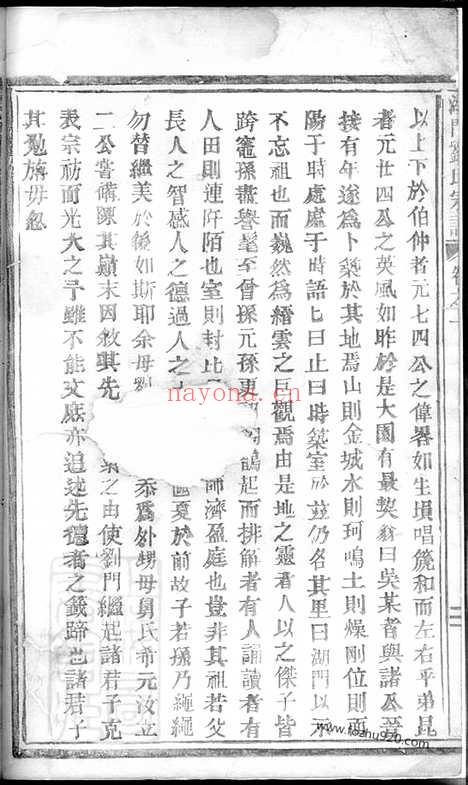 湖門劉氏宗譜 卷之一
以上下於伯仲者元七四公之偉畧如生塤唱篪和而左右乎弟昆
者元廿四公之英風如昨於是大園有最契翁曰吳某者與諸公至
接有年遂為卜築於其地焉山則金城水則珂鳴土則燥剛位則面
陽于時處處于時語七曰止曰時築室於茲仍名其里曰湖門以示
不忘祖也而巍然為縉雲之巨觀焉由是地之靈者人以之傑子皆
跨竈孫盡譽髦至曾孫元孫更 鵲起而排解者有人誦讀者有
人田則連阡陌也室則封比 師濟盈庭也豈非其祖若父
長人之智感人之德過人之 區夏於前故子若孫乃繩繩
勿替繼美於後如斯耶余毋 忝為外甥毋舅氏希元汝立
二公嘗備陳其巔末因敘其先 之由使劉門繼起諸君子克
表宗祊而光大之予雖不能文庶亦追述先德者之籤蹄也諸君子
其勉旃毋忽
nayona.cn
www.fozhu920.com